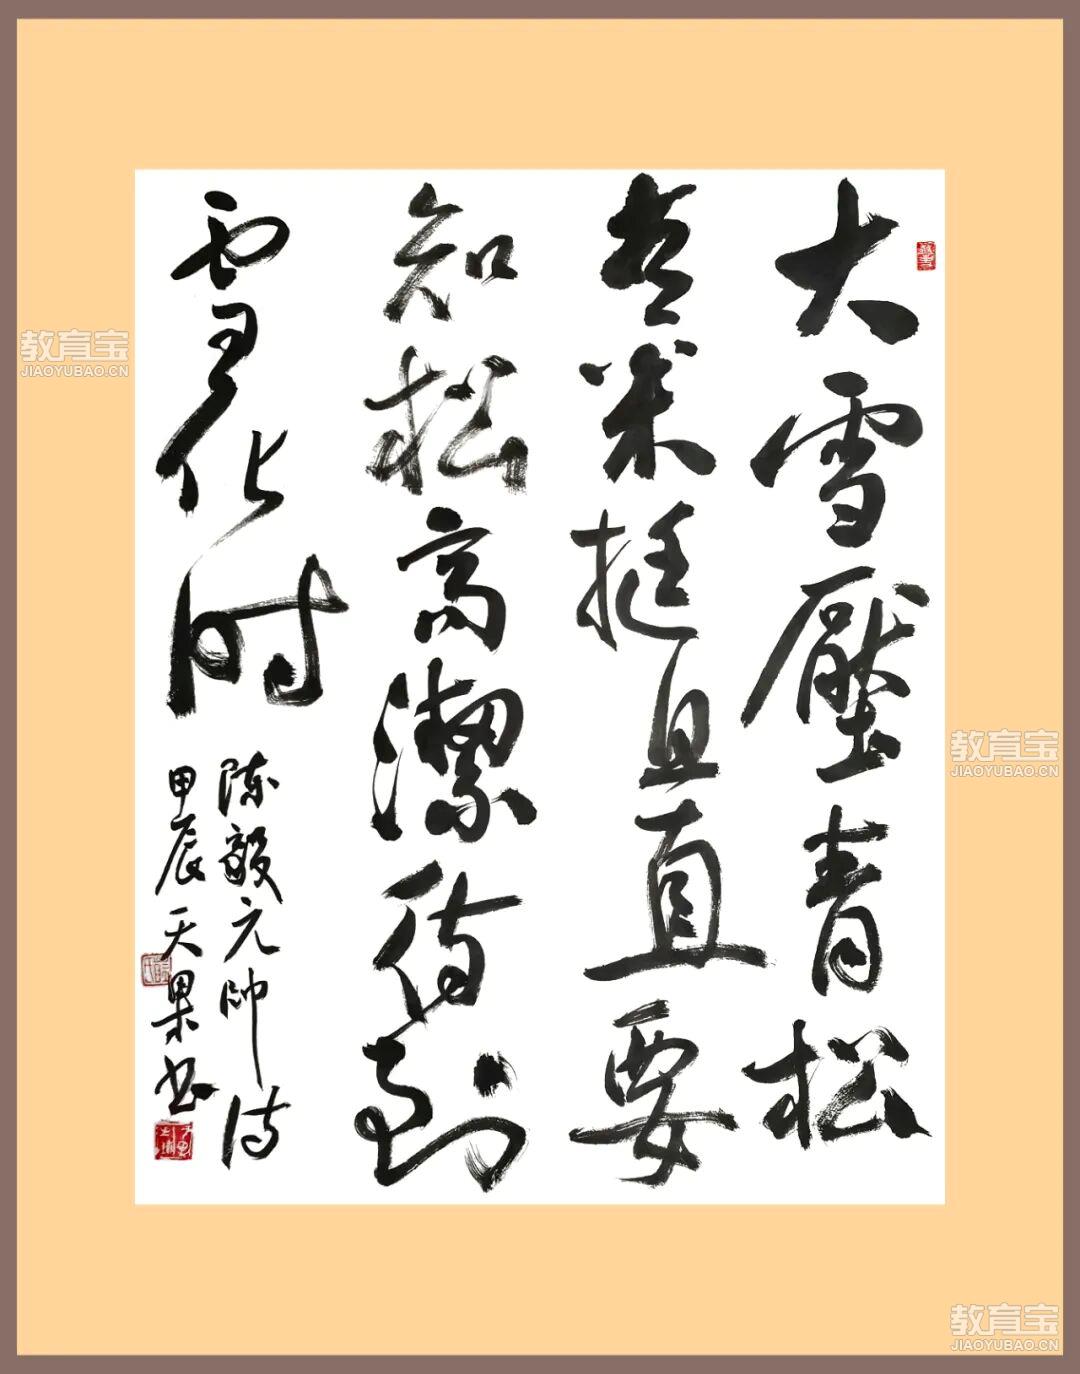 大雪壓青松
青松挺且直要
知松高潔待到
雪化时
陈毅元帥诗
甲辰天果书
教育宝
JIAOYUBAO.CN
教育宝
JIAOYUBAO.CN
教育宝
JIAOYUBAO.CN